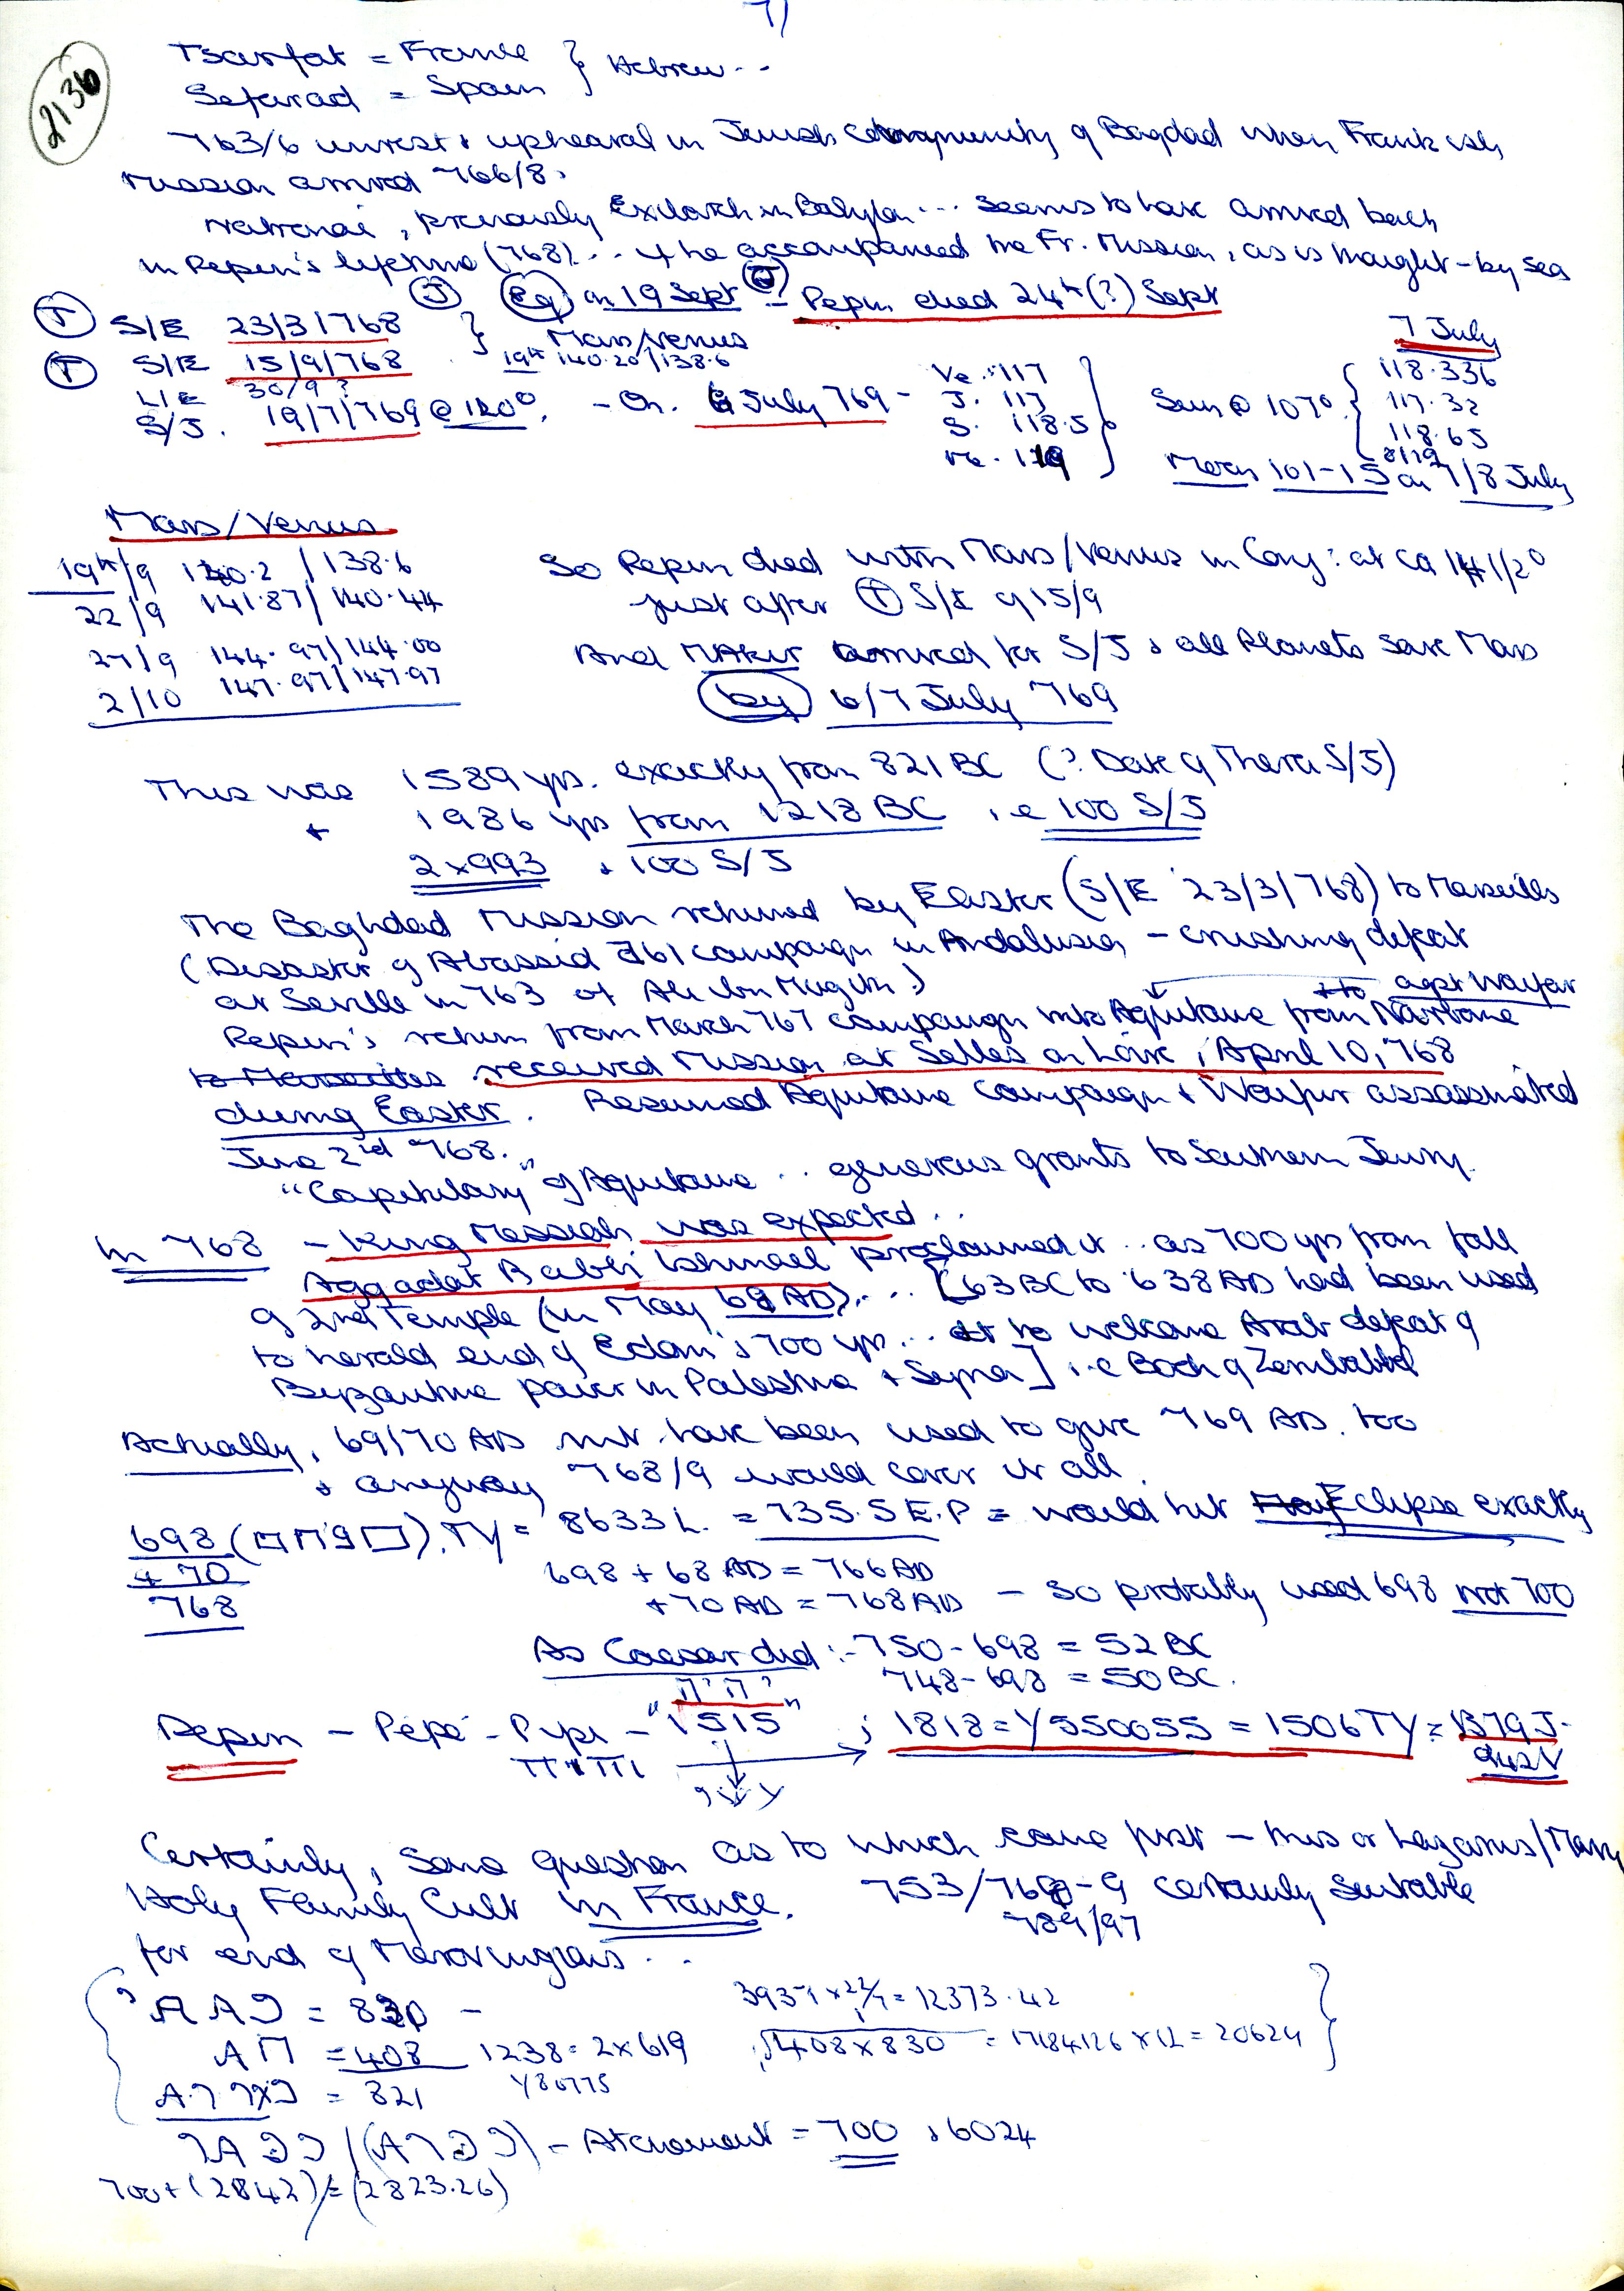 7)
2136
Tsarfat = France } Hebrew ..
Sefarad = Spain
763/6 unrest & upheaval in Jewish Community of Bagdad when Frankish
mission arrived 766/8.
Natronai, previously Exilarch in Babylon ... seems to have arrived back
in Pepin's lifetime (768) ... if he accompanied the Fr. Mission, as is thought - by sea
(T) S/E 23/3/768 } (J) (Eq) on 19 Sept (J) - Pepin died 24th (?) Sept
Mars/Venus
(T) S/E 15/9/768 19th 140.20/138.6
L/E 30/9 ?
S/J. 19/7/769 @ 120°. - On 6 July 769 -
Ve. 117
J. 117
S. 118.5
Me. 119
Sun @ 107°
7 July
118.336
117.32
118.65
119
Moon 101-15 on 7/8 July
Mars/Venus
19th/9 140.2 / 138.6
22/9 141.87 / 140.44
27/9 144.97 / 144.00
2/10 147.97 / 147.97
So Pepin died with Mars/Venus in Conj: at ca 141 1/2°
just after (T) S/E of 15/9
And Makir arrived for S/J & all Planets save Mars
(by) 6/7 July 769
This was 1589 yrs. exactly from 821 BC (? Date of Thera S/J)
+ 1986 yrs from 1218 BC i.e 100 S/J
2x993 & 100 S/J
The Baghdad Mission returned by Easter (S/E 23/3/768) to Marseilles
(Disaster of Abassid 761 campaign in Andalusia - crushing defeat
at Seville in 763 of Ala ibn Mugith.)
agst Waifar
Pepin's return from March 767 campaign into Aquitaine from Narbonne
to Marseilles received mission at Selles on Loire, April 10, 768
during Easter. Resumed Aquitaine Campaign & Waifur assassinated
June 2nd 768.
"Capitulary" of Aquitaine .. generous grants to Southern Jewry.
In 768 - King Messiah was expected ..
Aggadat Rabbi Ishmael proclaimed it .. as 700 yrs from fall
of 2nd Temple (in May 68 AD) ... [63 BC to 638 AD had been used
to herald end of Edom's 700 yrs ... to welcome Arab defeat of
Byzantine power in Palestine & Syria] i.e Book of Zerubabbel
Actually, 69/70 AD mt. have been used to give 769 AD. too
& anyway 768/9 would cover it all.
698 TY = 8633 L. = 735.5 E.P = would hit Eclipse exactly
+ 70
768
698 + 68 AD = 766 AD
+ 70 AD = 768 AD - so probably used 698 not 700
As Caesar did :- 750 - 698 = 52 BC
748 - 698 = 50 BC.
Pepin - Pépé - Pypi - "1515" ; 1818 = Y550055 = 1506 TY = 1379 J.
942 V
Certainly, some question as to which came first - this or Lazarus/Mary
Holy Family Cult in France. 753/768-9 certainly suitable
789/97
for end of Merovingians ...
= 830 -
= 408 1238 = 2x619
Y80775
= 821
393-7 x 22/7 = 12373.42
√408x830 = 17184126 x 12 = 20624
- Atonement = 700 & 6024
700 + (2842) / = (2823.26)